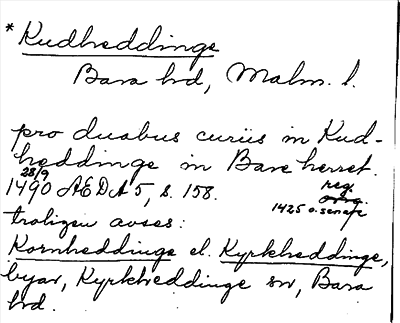 * Kudheddinge
Bara hd, Malm. l.
pro duabus curiis in Kud-
heddinge in Bare herret.
28/9
1490 ÆDA 5, s. 158. reg.
orig.
1425 o. senare
troligen avses:
Kornheddinge el. Kyrkheddinge,
byar, Kyrkheddinge sn, Bara
hd.